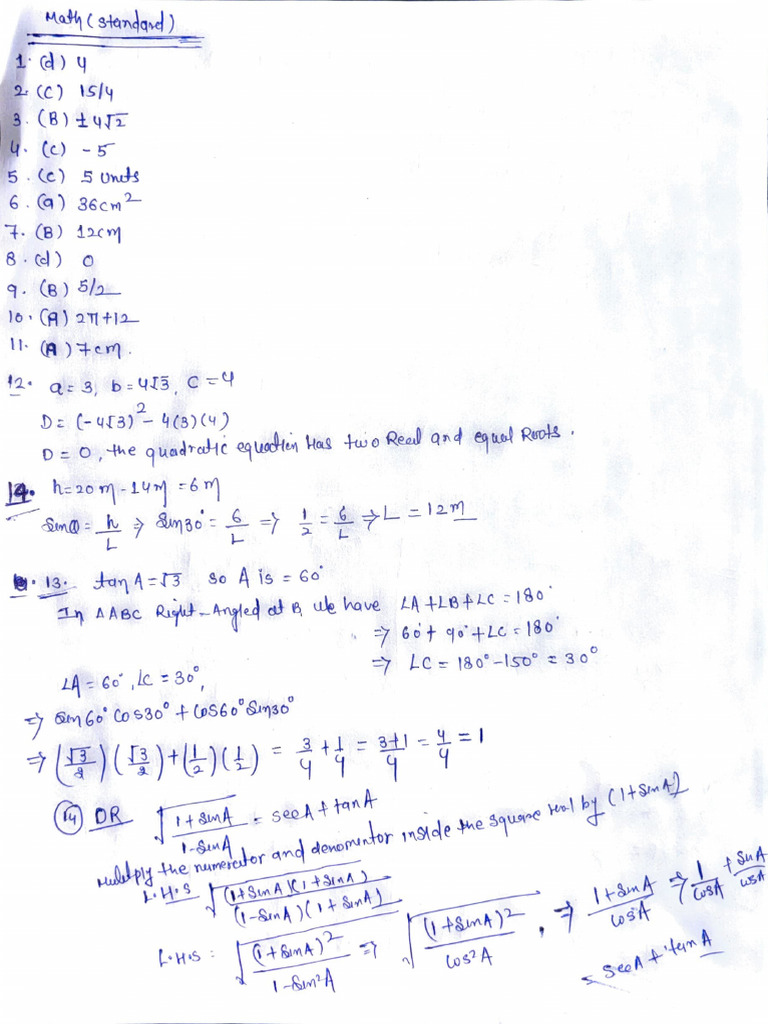 Math (standard)
1. (d) 4
2. (C) 15/4
3. (B) ±4√2
4. (C) -5
5. (C) 5 units
6. (a) 36cm²
7. (B) 12cm
8. (d) 0
9. (B) 5/2
10. (A) 2π+12
11. (A) 7cm.
12. a=3, b=4√3, C=4
D= (-4√3)² - 4(3)(4)
D=0, the quadratic equation Has two Real and equal Roots.
14. h=20m-14m=6m
Sinθ = h/L ⇒ Sin30° = 6/L ⇒ 1/2 = 6/L ⇒ L = 12m
13. tan A = √3 so A is = 60°
In △ABC Right-Angled at B, we have ∠A+∠B+∠C=180°
⇒ 60°+90°+∠C=180°
⇒ ∠C=180°-150°=30°
∠A=60°, ∠C=30°,
⇒ Sin60° Cos30° + Cos60° Sin30°
⇒ (√3/2)(√3/2)+(1/2)(1/2) = 3/4 + 1/4 = 3+1/4 = 4/4 = 1
(14) OR √(1+SinA/1-SinA) = secA+tanA
Multiply the numerator and denomentor inside the square by (1+SinA)
L.H.S √((1+SinA)(1+SinA)/(1-SinA)(1+SinA))
L.H.S: √((1+SinA)²/1-Sin²A) ⇒ √((1+SinA)²/cos²A), ⇒ 1+SinA/cosA ⇒ 1/cosA + SinA/cosA
= secA + tanA